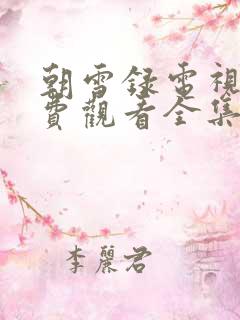 朝雪録電視
費觀看全集
李麗君